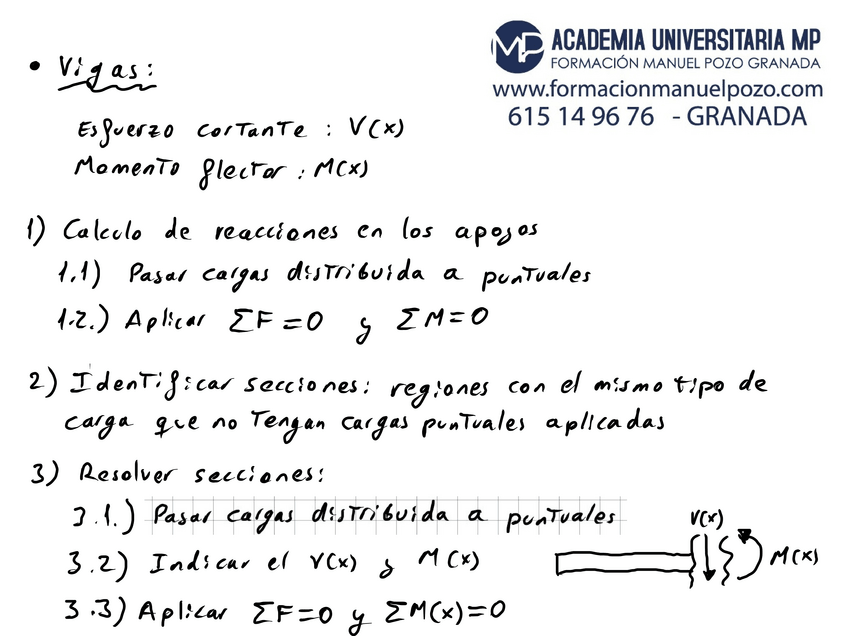 MP ACADEMIA UNIVERSITARIA MP
FORMACIÓN MANUEL POZO GRANADA
www.formacionmanuelpozo.com
615 14 96 76 - GRANADA
• Vigas:
Esfuerzo cortante : V(x)
Momento flector : M(x)
1) Calculo de reacciones en los apoyos
1.1) Pasar cargas distribuida a puntuales
1.2.) Aplicar ΣF=0 y ΣM=0
2) Identificar secciones: regiones con el mismo tipo de
carga que no Tengan cargas puntuales aplicadas
3) Resolver secciones:
3.1.) Pasar cargas distribuida a puntuales
3.2) Indicar el V(x) y M(x)
3.3) Aplicar ΣF=0 y ΣM(x)=0
V(x)
M(x)